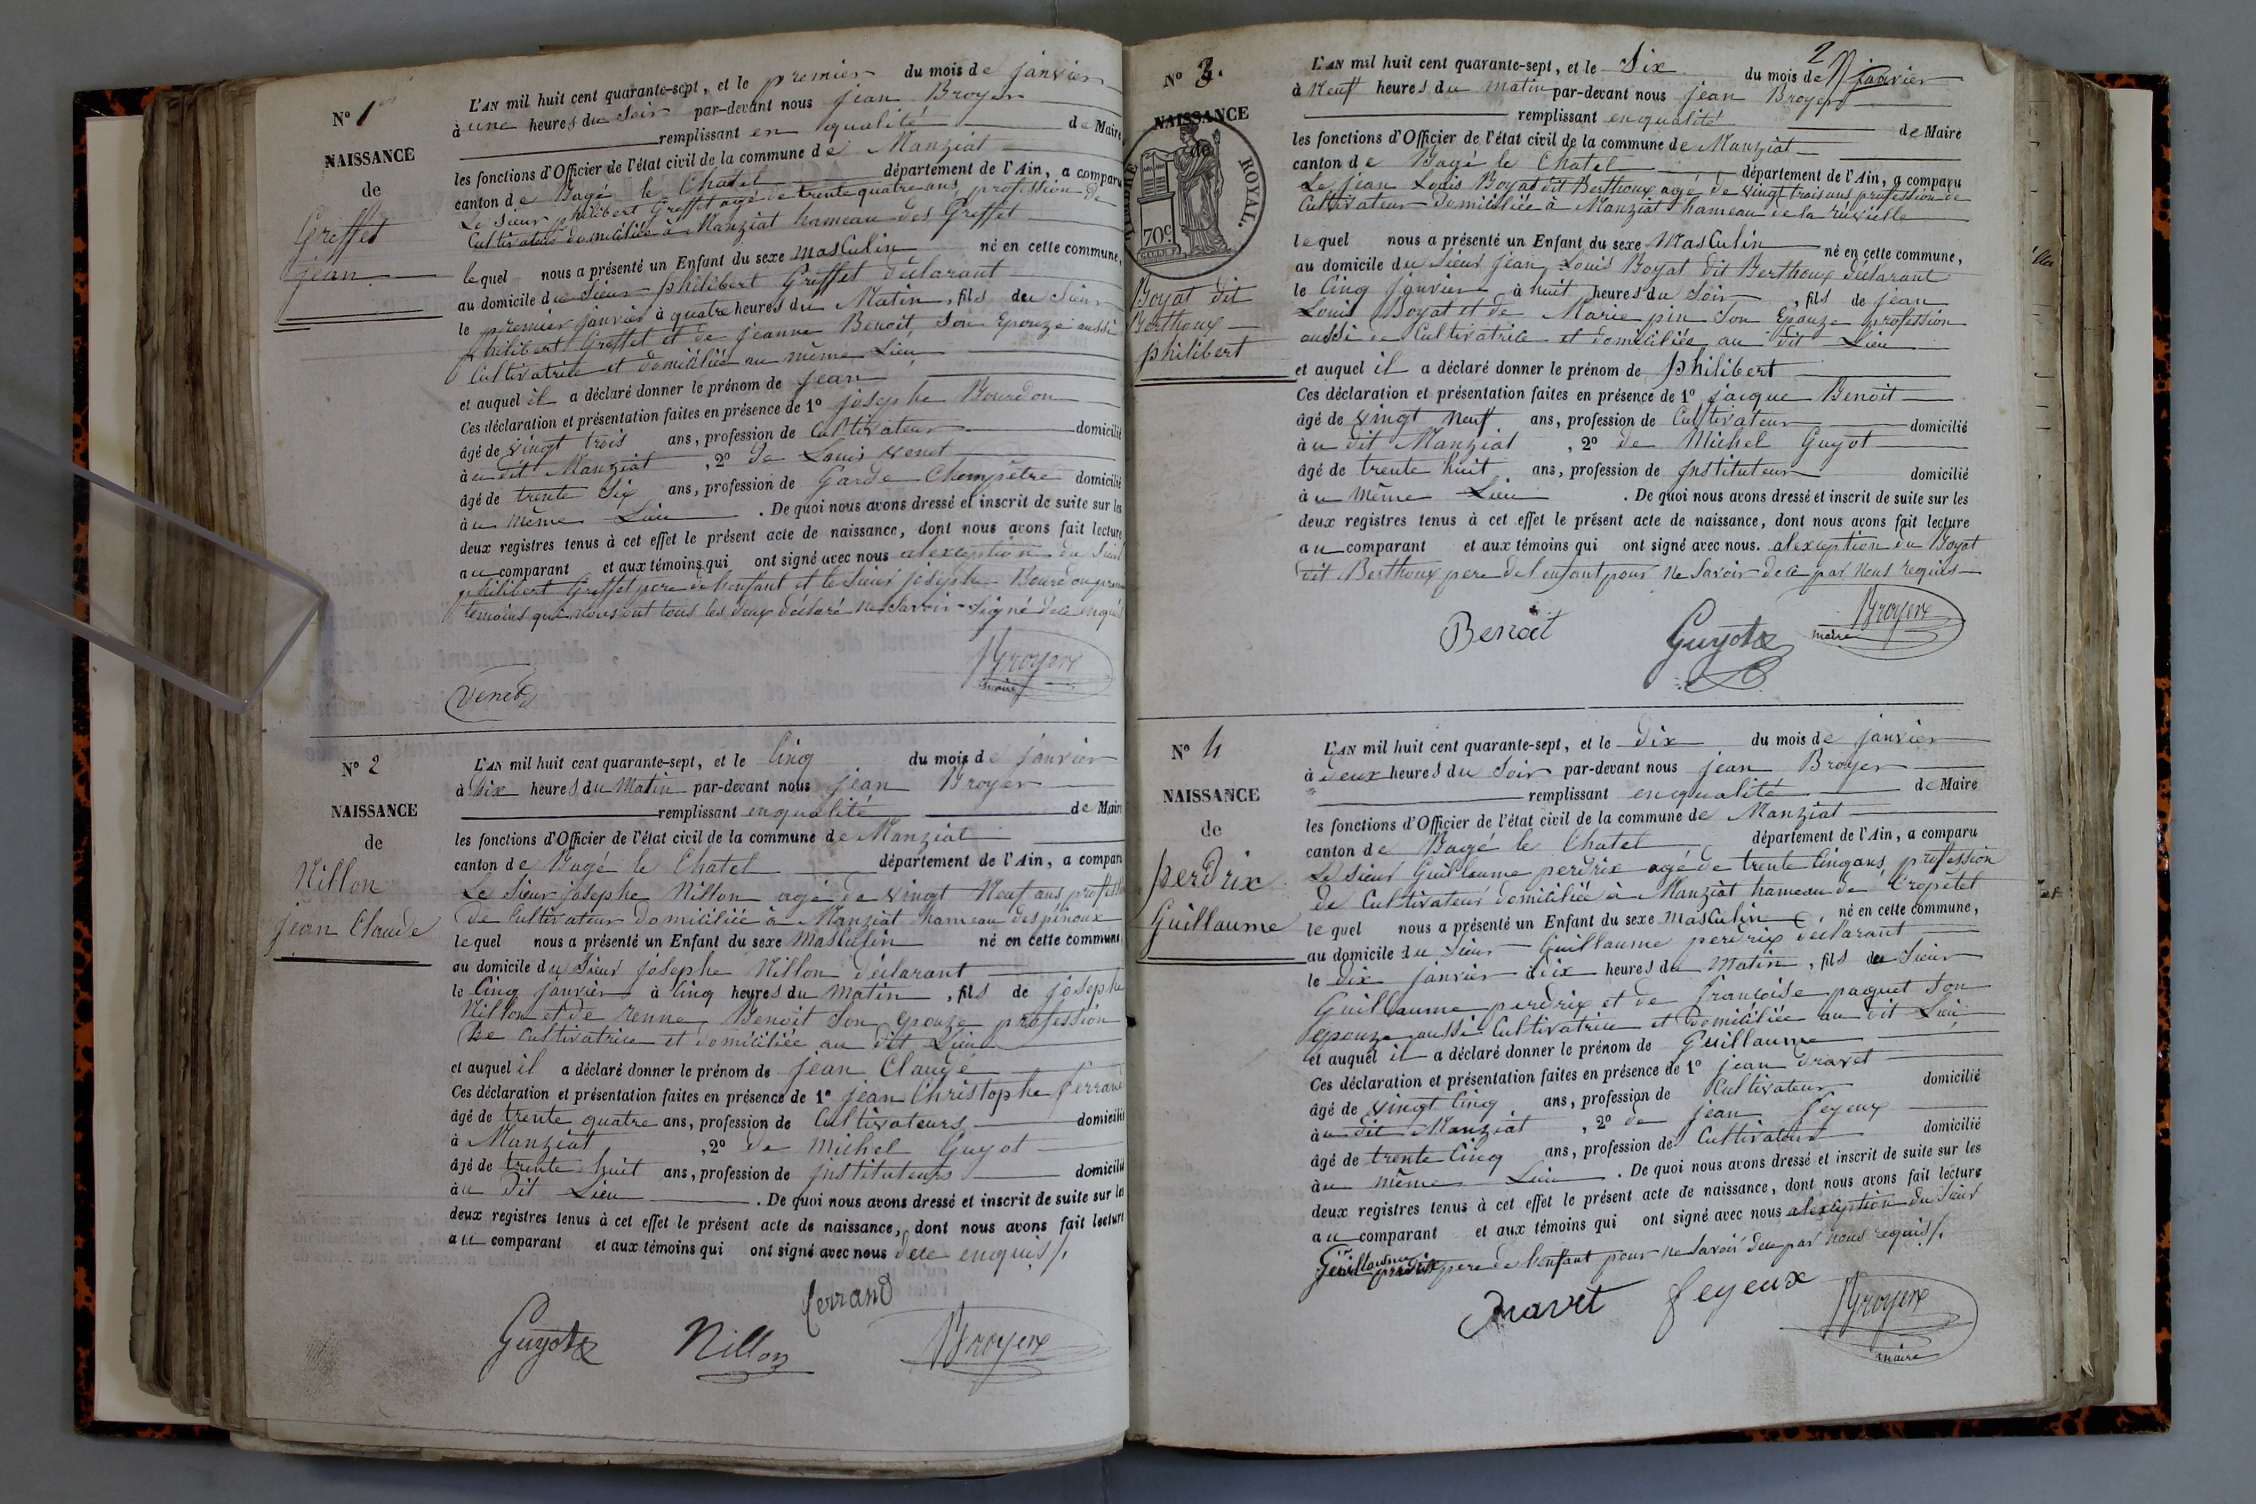 N° 1er
NAISSANCE
de
Greffet
jean
L'AN mil huit cent quarante-sept, et le premier du mois de janvier
à une heures du Soir par-devant nous jean Broyer
remplissant en qualité de Maire
les fonctions d'Officier de l'état civil de la commune de Manziat
canton de Bagé le Chatel département de l'Ain, a comparu
Le Sieur philibert Greffet agé de trente quatre ans profession de
Cultivateur domiciliée à Manziat hameau des Greffet
lequel nous a présenté un Enfant du sexe masculin né en cette commune,
au domicile du Sieur philibert Greffet déclarant
le premier janvier à quatre heures du Matin, fils du Sieur
philibert Greffet et de jeanne Benoit, Son Epouze aussi
Cultivatrice et domiciliée au même Lieu
et auquel il a déclaré donner le prénom de jean
Ces déclaration et présentation faites en présence de 1° josephe Bourdon
âgé de vingt trois ans, profession de Cultivateur domicilié
à au dit Manziat, 2° de Louis venet
âgé de trente Six ans, profession de Garde Champêtre domicilié
à au même Lieu. De quoi nous avons dressé et inscrit de suite sur les
deux registres tenus à cet effet le présent acte de naissance, dont nous avons fait lecture
au comparant et aux témoins qui ont signé avec nous alexception du Sieur
philibert Greffet pere de lenfant et le Sieur josephe Bourdon
temoins qui nous ont tous les deux déclaré ne Savoir Signé dece enquis
venet
Broyer
maire
N° 2
NAISSANCE
de
Nillon
jean Claude
L'AN mil huit cent quarante-sept, et le Cinq du mois de janvier
à Dix heures du Matin par-devant nous jean Broyer
remplissant enqualité de Maire
les fonctions d'Officier de l'état civil de la commune de Manziat
canton de Bagé le Chatel département de l'Ain, a comparu
Le Sieur josephe Nillon agé de vingt Neuf ans profession
de Cultivateur domiciliée à Manziat hameau des pinoux
lequel nous a présenté un Enfant du sexe Masculin né en cette commune,
au domicile du Sieur josephe Nillon déclarant
le Cinq janvier à Cinq heures du matin, fils de josephe
Nillon et de renne Benoit Son epouze profession
De Cultivatrice et domiciliée au dit Lieu
et auquel il a déclaré donner le prénom de jean Claude
Ces déclaration et présentation faites en présence de 1° jean Christophe ferrand
âgé de trente quatre ans, profession de Cultivateurs domicilié
à Manziat, 2° de michel Guyot
âgé de trente huit ans, profession de jnstituteurs domicilié
à au Dit Lieu. De quoi nous avons dressé et inscrit de suite sur les
deux registres tenus à cet effet le présent acte de naissance, dont nous avons fait lecture
au comparant et aux témoins qui ont signé avec nous dece enquis/.
ferrand
Guyot
Nillon
Broyer
2
N° 3.
NAISSANCE
de
TIMBRE ROYAL.
70c
Boyat dit
Berthoux
philibert
L'AN mil huit cent quarante-sept, et le Six du mois de janvier
à Neuf heures du matin par-devant nous jean Broyer
remplissant enqualité de Maire
les fonctions d'Officier de l'état civil de la commune de Manziat
canton de Bagé le Chatel département de l'Ain, a comparu
Le jean Louis Boyat dit Berthoux agé de vingt trois ans profession de
Cultivateur domiciliée à Manziat hameau de la
lequel nous a présenté un Enfant du sexe Masculin né en cette commune,
au domicile du Sieur jean Louis Boyat dit Berthoux déclarant
le Cinq janvier à huit heures du Soir, fils de jean
Louis Boyat et de Marie pin Son Epouze profession
aussi de Cultivatrice et domiciliée au dit Lieu
et auquel il a déclaré donner le prénom de philibert
Ces déclaration et présentation faites en présence de 1° jacque Benoit
âgé de vingt Neuf ans, profession de Cultivateur domicilié
à au dit Manziat, 2° de Michel Guyot
âgé de trente huit ans, profession de jnstituteur domicilié
à au même Lieu. De quoi nous avons dressé et inscrit de suite sur les
deux registres tenus à cet effet le présent acte de naissance, dont nous avons fait lecture
au comparant et aux témoins qui ont signé avec nous. alexception du Boyat
dit Berthoux pere de lenfant pour ne Savoir dece par Nous requis
Benoit
Guyot
Broyer
maire
N° 4
NAISSANCE
de
perdrix
Guillaume
L'AN mil huit cent quarante-sept, et le dix du mois de janvier
à deux heures du Soir par-devant nous jean Broyer
remplissant enqualité de Maire
les fonctions d'Officier de l'état civil de la commune de Manziat
canton de Bagé le Chatel département de l'Ain, a comparu
Le Sieur Guillaume perdrix agé de trente Cinq ans, profession
de Cultivateur domiciliée à Manziat hameau de Cropetet
lequel nous a présenté un Enfant du sexe masculin né en cette commune,
au domicile du Sieur Guillaume perdrix déclarant
le dix janvier à dix heures du Matin, fils du Sieur
Guillaume perdrix et de françoise paquet Son
epouze aussi Cultivatrice et domiciliée au dit Lieu
et auquel il a déclaré donner le prénom de Guillaume
Ces déclaration et présentation faites en présence de 1° jean Dravet
âgé de vingt Cinq ans, profession de Cultivateur domicilié
à au dit Manziat, 2° de jean feyeux
âgé de trente Cinq ans, profession de Cultivateur domicilié
à au même Lieu. De quoi nous avons dressé et inscrit de suite sur les
deux registres tenus à cet effet le présent acte de naissance, dont nous avons fait lecture
au comparant et aux témoins qui ont signé avec nous alexception du Sieur
Guillaume perdrix pere de lenfant pour ne Savoir dece par nous requis/.
Dravet
feyeux
Broyer
maire